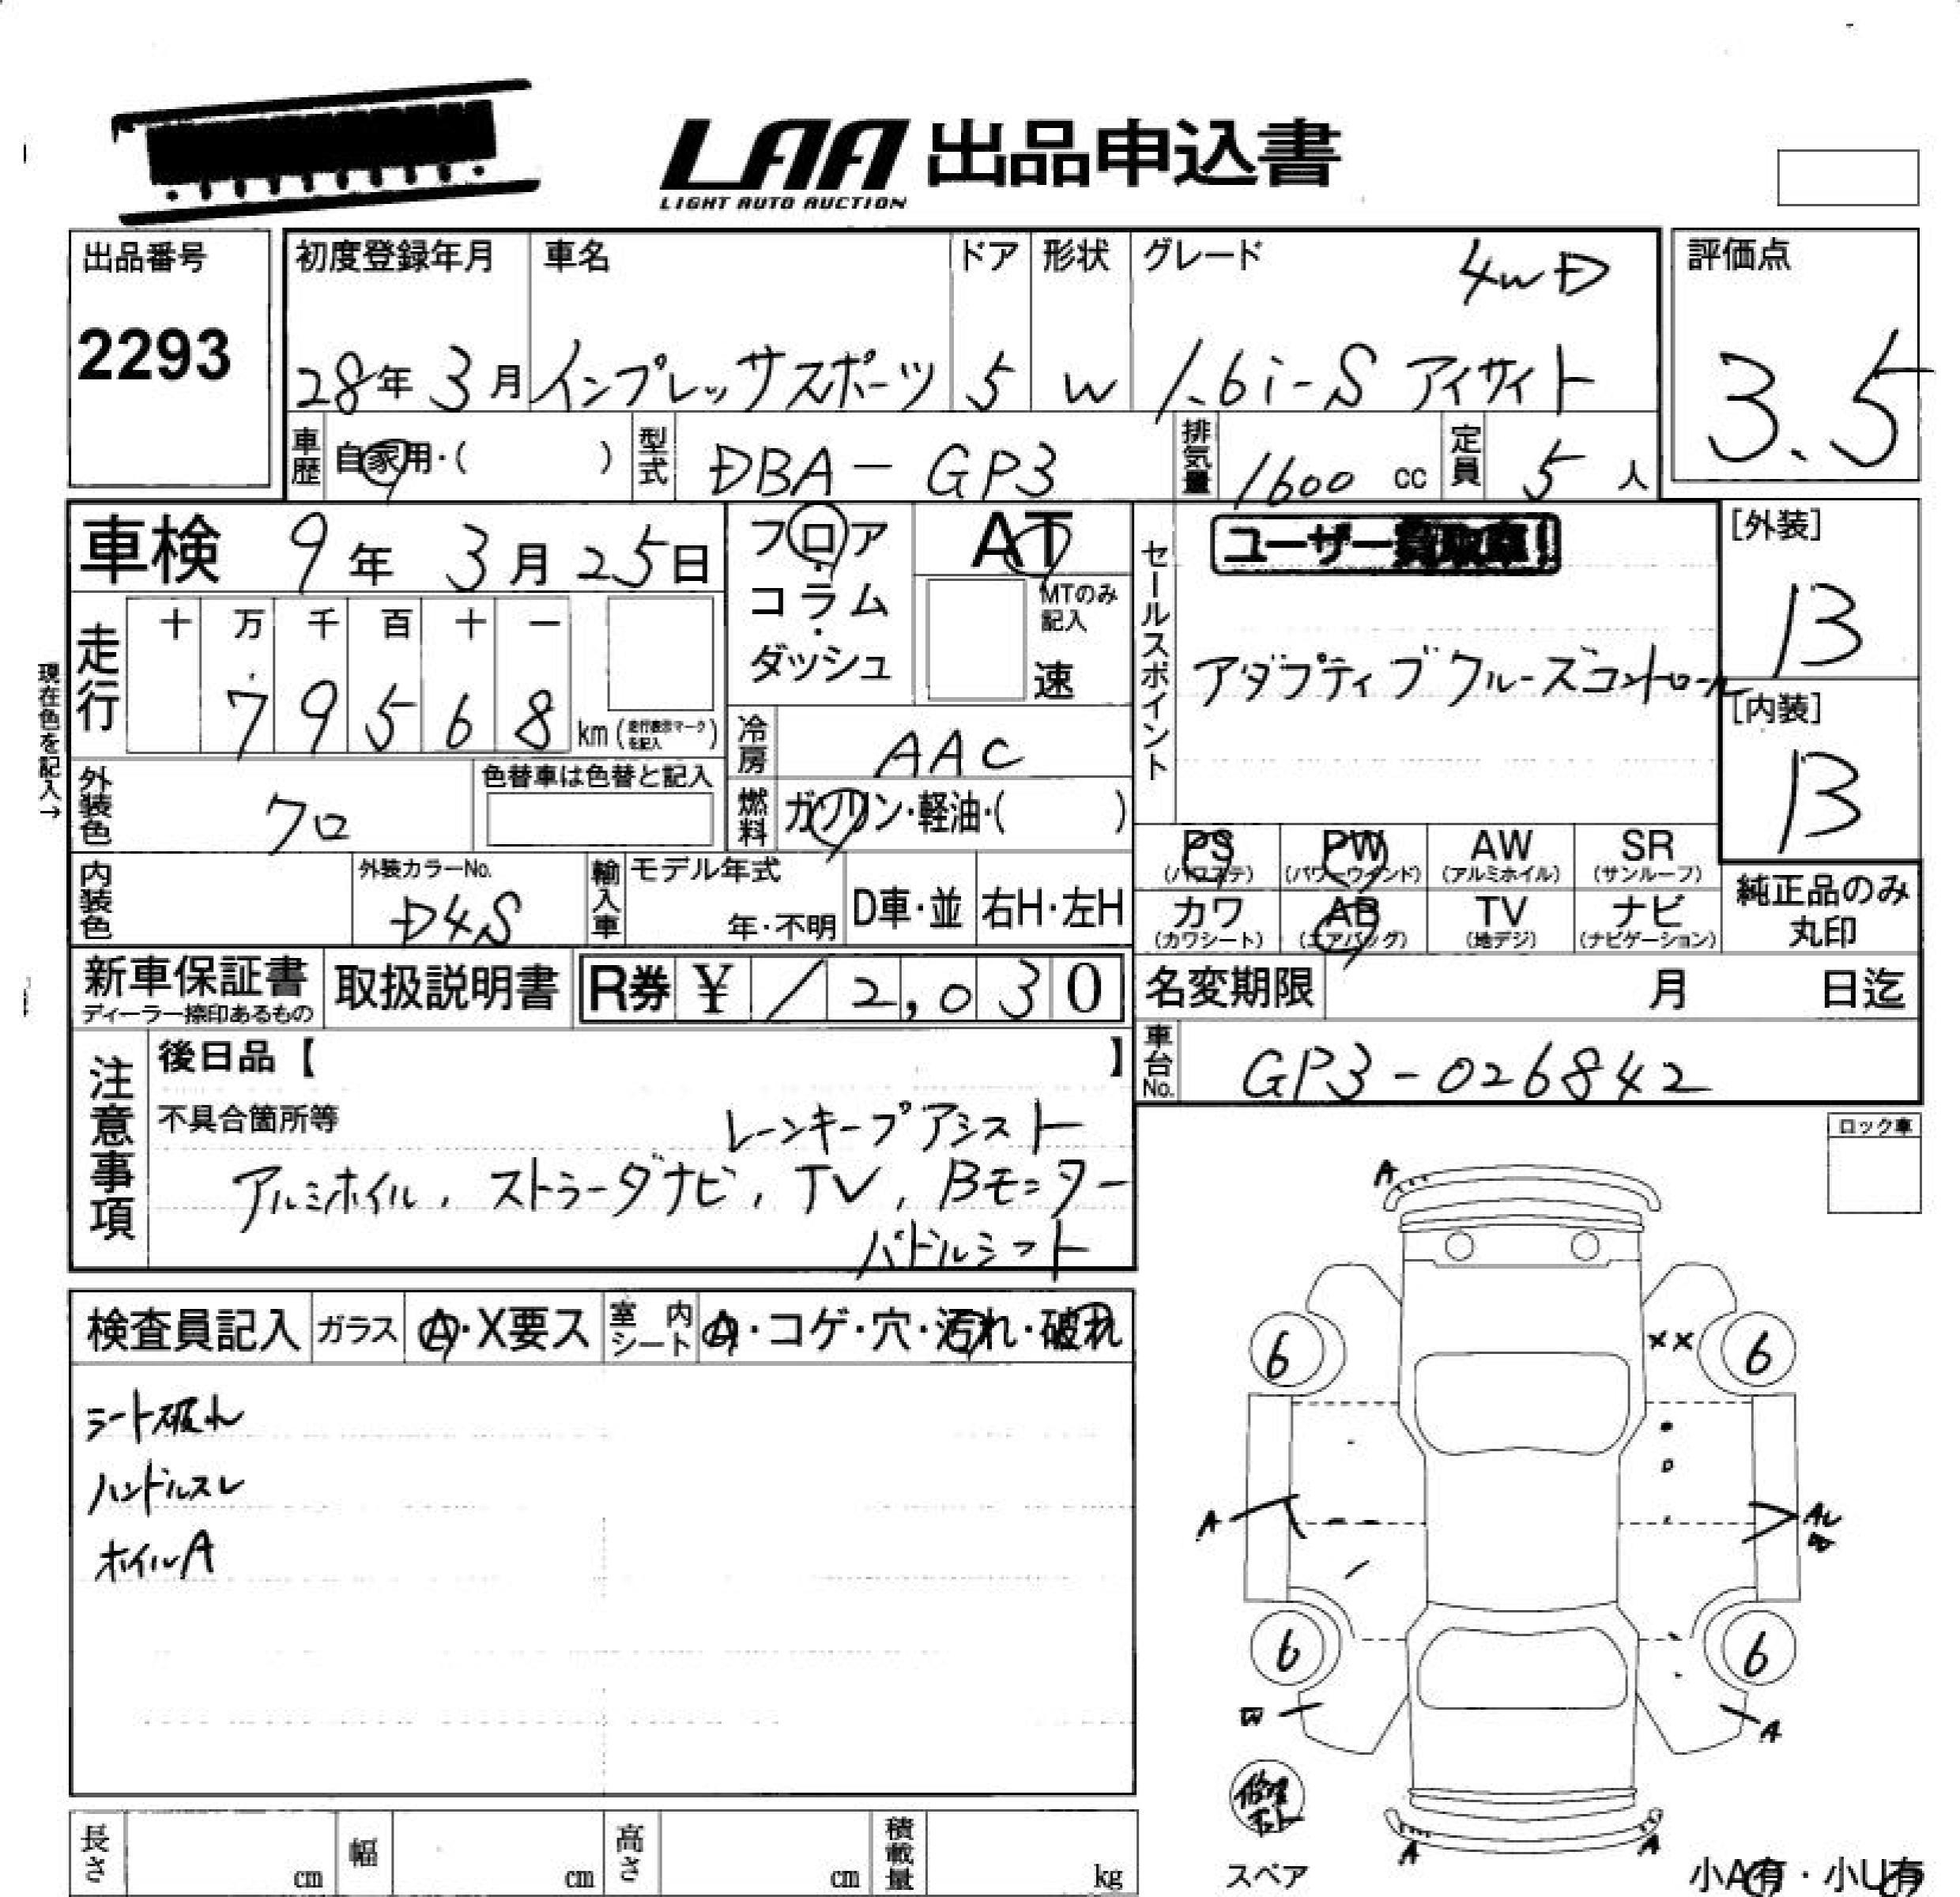 LAA 出品申込書
LIGHT AUTO AUCTION
出品番号
2293
初度登録年月 車名 ドア 形状 グレード 4WD
28年 3月 インプレッサスポーツ 5 W 1.6i-S アイサイト
評価点
3.5
車歴 自家用・( ) 型式 DBA-GP3 排気量 1600 cc 定員 5 人
車検 9年 3月 25日
フロア・コラム・ダッシュ
AT
MTのみ記入
速
セールスポイント
ユーザー買取車!
アダプティブクルーズコントロール
[外装]
B
[内装]
B
現在色を記入→
走行 十 万 千 百 十 一
7 9 5 6 8 km (走行表示マークを記入)
冷房 AAC
燃料 ガソリン・軽油・( )
外装色 クロ 色替車は色替と記入
内装色 外装カラーNo. D4S
輸入車 モデル年式 年・不明 D車・並 右H・左H
PS (パワステ) PW (パワーウインド) AW (アルミホイル) SR (サンルーフ)
カワ (カワシート) AB (エアバッグ) TV (地デジ) ナビ (ナビゲーション)
純正品のみ丸印
新車保証書 ディーラー捺印あるもの 取扱説明書 R券 ¥ 12,030
名変期限 月 日迄
車台No. GP3-026842
注意事項
後日品【 】
不具合箇所等 レーンキープアシスト
アルミホイル, ストラーダナビ, TV, Bモニター
パドルシフト
ロック車
検査員記入 ガラス A・X要ス 室内シート A・コゲ・穴・汚れ・破れ
シート破れ
ハンドルスレ
ホイルA
A
6 ×× 6
A
6 6
W A
A A
スペア
小A有・小U有
長さ cm 幅 cm 高さ cm 積載量 kg